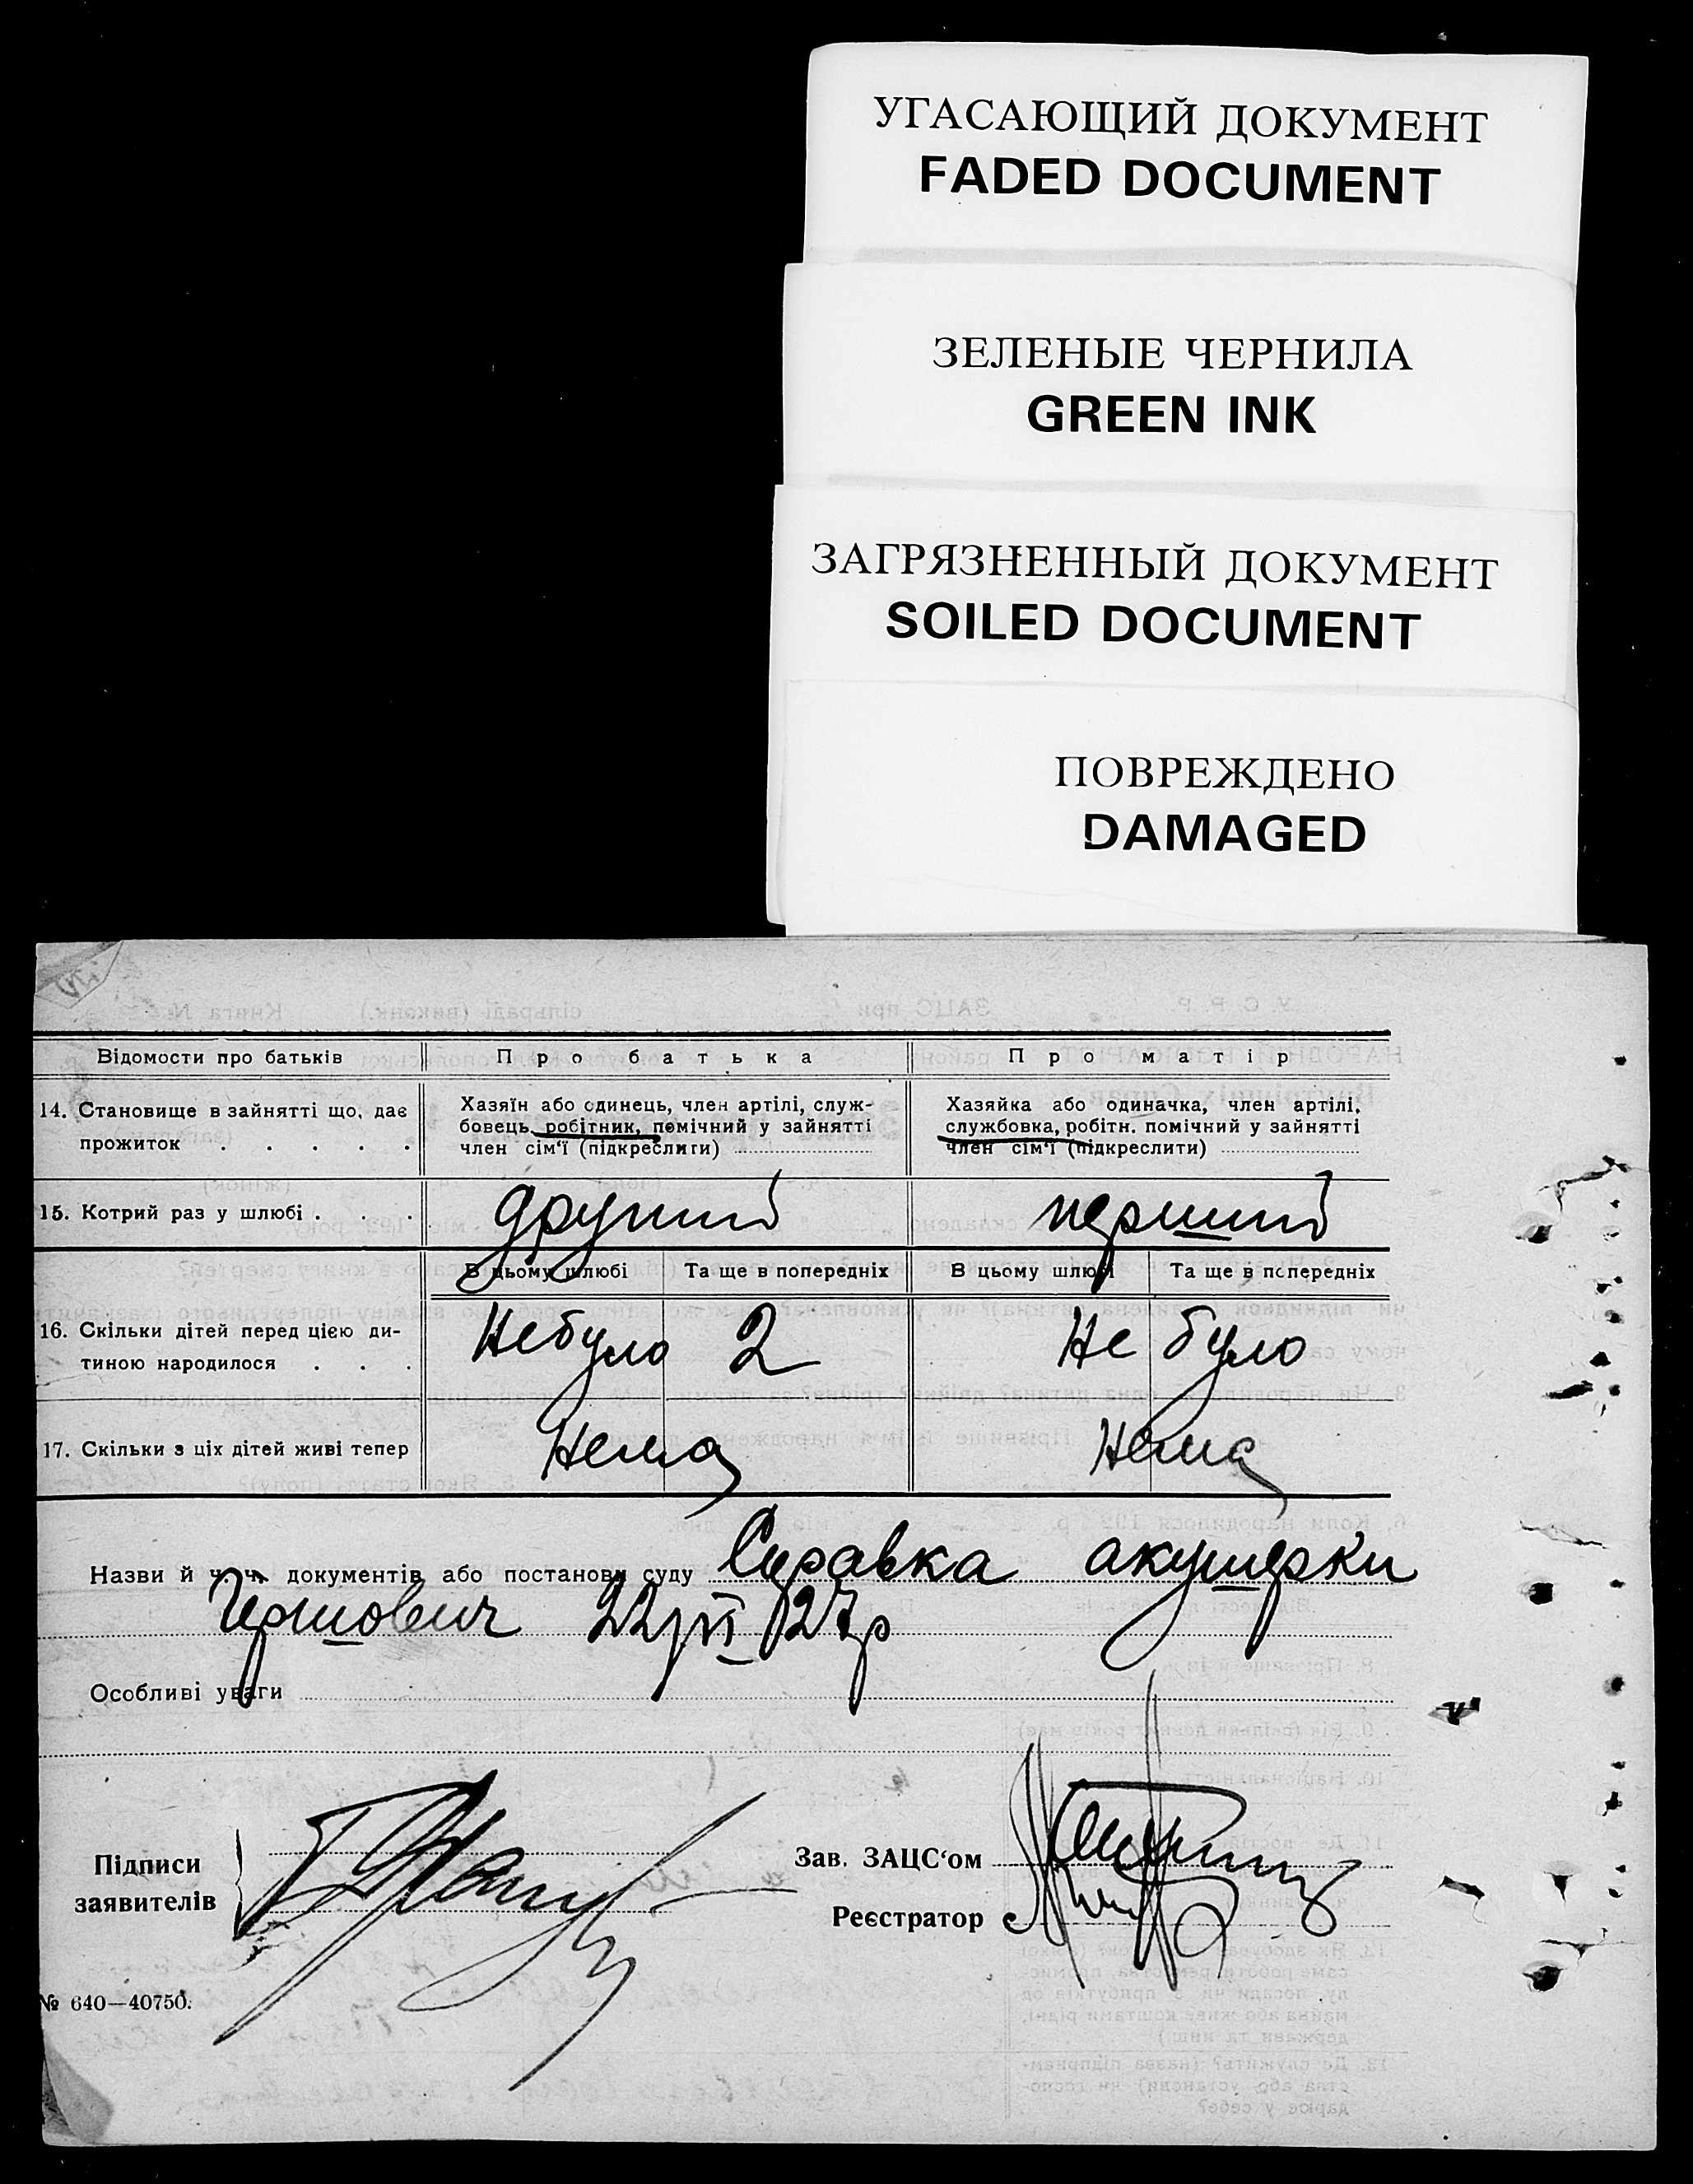 УГАСАЮЩИЙ ДОКУМЕНТ
FADED DOCUMENT
ЗЕЛЕНЫЕ ЧЕРНИЛА
GREEN INK
ЗАГРЯЗНЕННЫЙ ДОКУМЕНТ
SOILED DOCUMENT
ПОВРЕЖДЕНО
DAMAGED
Відомости про батьків Про батька Про матір
14. Становище в зайнятті що, дає
прожиток . . . . .
Хазяїн або одинець, член артілі, служ-
бовець, робітник, помічний у зайнятті
член сім'ї (підкреслити)
Хазяйка або одиначка, член артілі,
службовка, робітн. помічний у зайнятті
член сім'ї (підкреслити)
15. Котрий раз у шлюбі . . . другий перший
В цьому шлюбі Та ще в попередніх В цьому шлюбі Та ще в попередніх
16. Скільки дітей перед цією ди-
тиною народилося . . .
Небуло 2 Не було
17. Скільки з ціх дітей живі тепер Нема Нема
Назви й ч. ч. документів або постанови суду Справка акушерки
22/VI 27р
Особливі уваги
Підписи
заявителів
Зав. ЗАЦС'ом
Реєстратор
№ 640—40750.